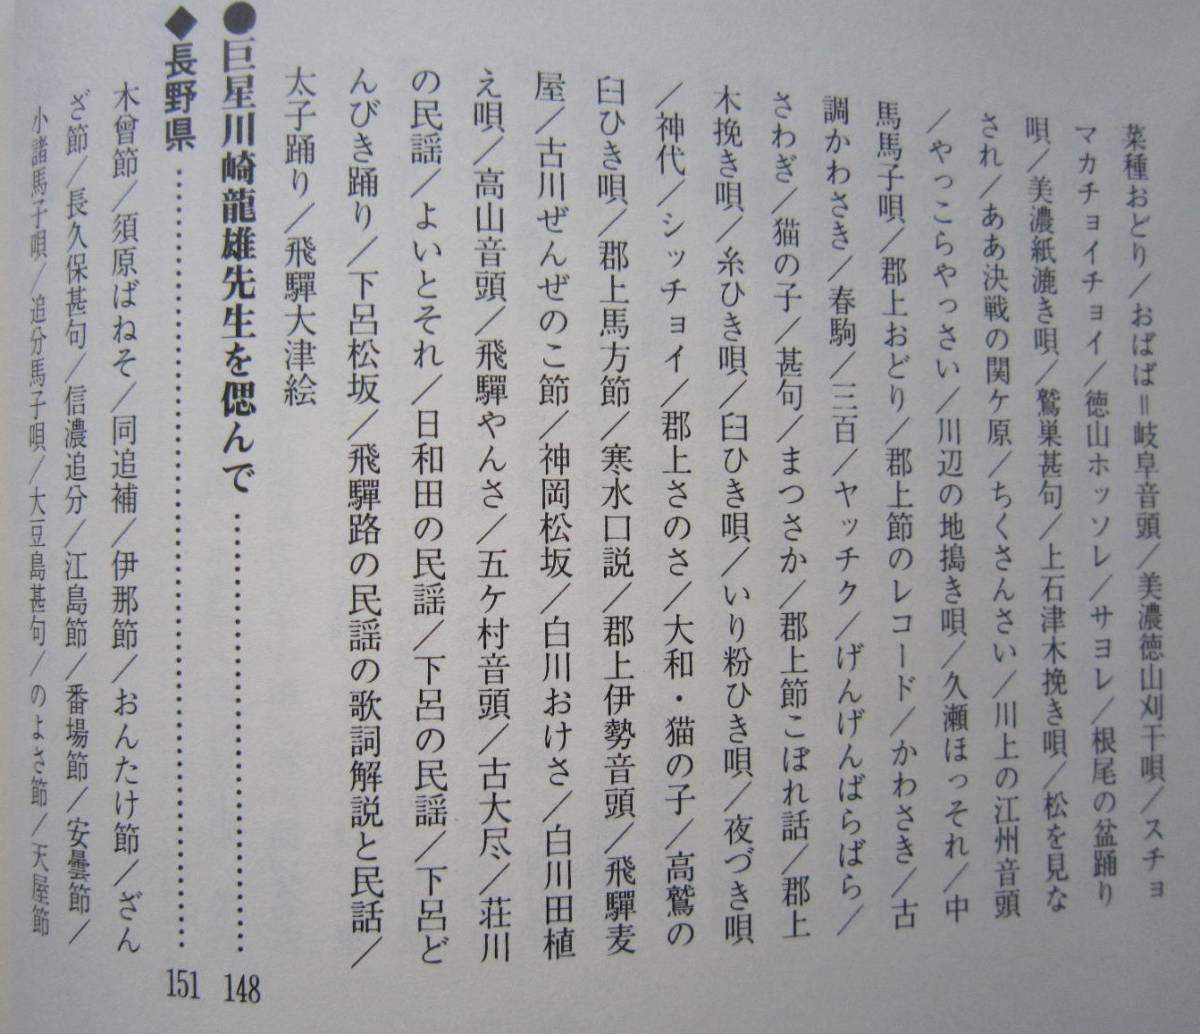 菜種おどり／おばば＝岐阜音頭／美濃徳山刈干唄／スチョ
マカチョイチョイ／徳山ホッソレ／サヨレ／根尾の盆踊り
唄／美濃紙漉き唄／鷲巣甚句／上石津木挽き唄／松を見な
され／ああ決戦の関ケ原／ちくさんさい／川上の江州音頭
／やっこらやっさい／川辺の地搗き唄／久瀬ほっそれ／中
馬馬子唄／郡上おどり／郡上節のレコード／かわさき／古
調かわさき／春駒／三百／ヤッチク／げんげんばらばら／
さわぎ／猫の子／甚句／まつさか／郡上節こぼれ話／郡上
木挽き唄／糸ひき唄／臼ひき唄／いり粉ひき唄／夜づき唄
／神代／シッチョイ／郡上さのさ／大和・猫の子／高鷲の
臼ひき唄／郡上馬方節／寒水口説／郡上伊勢音頭／飛驒麦
屋／古川ぜんぜのこ節／神岡松坂／白川おけさ／白川田植
え唄／高山音頭／飛驒やんさ／五ケ村音頭／古大尽／荘川
の民謡／よいとそれ／日和田の民謡／下呂の民謡／下呂ど
んびき踊り／下呂松坂／飛驒路の民謡の歌詞解説と民話／
太子踊り／飛驒大津絵
●巨星川崎龍雄先生を偲んで……………………148
◆長野県……………………………………151
木曾節／須原ばねそ／同追補／伊那節／おんたけ節／ざん
ざ節／長久保甚句／信濃追分／江島節／番場節／安曇節／
小諸馬子唄／追分馬子唄／大豆島甚句／のよさ節／天屋節